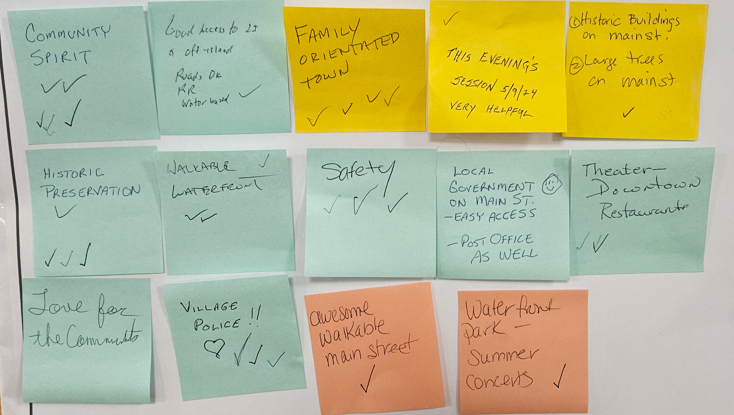 COMMUNITY
SPIRIT
Good Access to LI
& off-island
Roads OK
RR
Water
FAMILY
ORIENTATED
TOWN
THIS EVENING'S
SESSION 5/9/24
VERY HELPFUL
① Historic Buildings
on main st.
② Large trees
on main st
HISTORIC
PRESERVATION
WALKABLE
WATERFRONT
Safety
LOCAL
GOVERNMENT
ON MAIN ST.
- EASY ACCESS
- POST OFFICE
AS WELL
Theater-
Downtown
Restaurants
Love for
the Community
VILLAGE
POLICE !!
awesome
walkable
main street
Waterfront
park -
summer
concerts